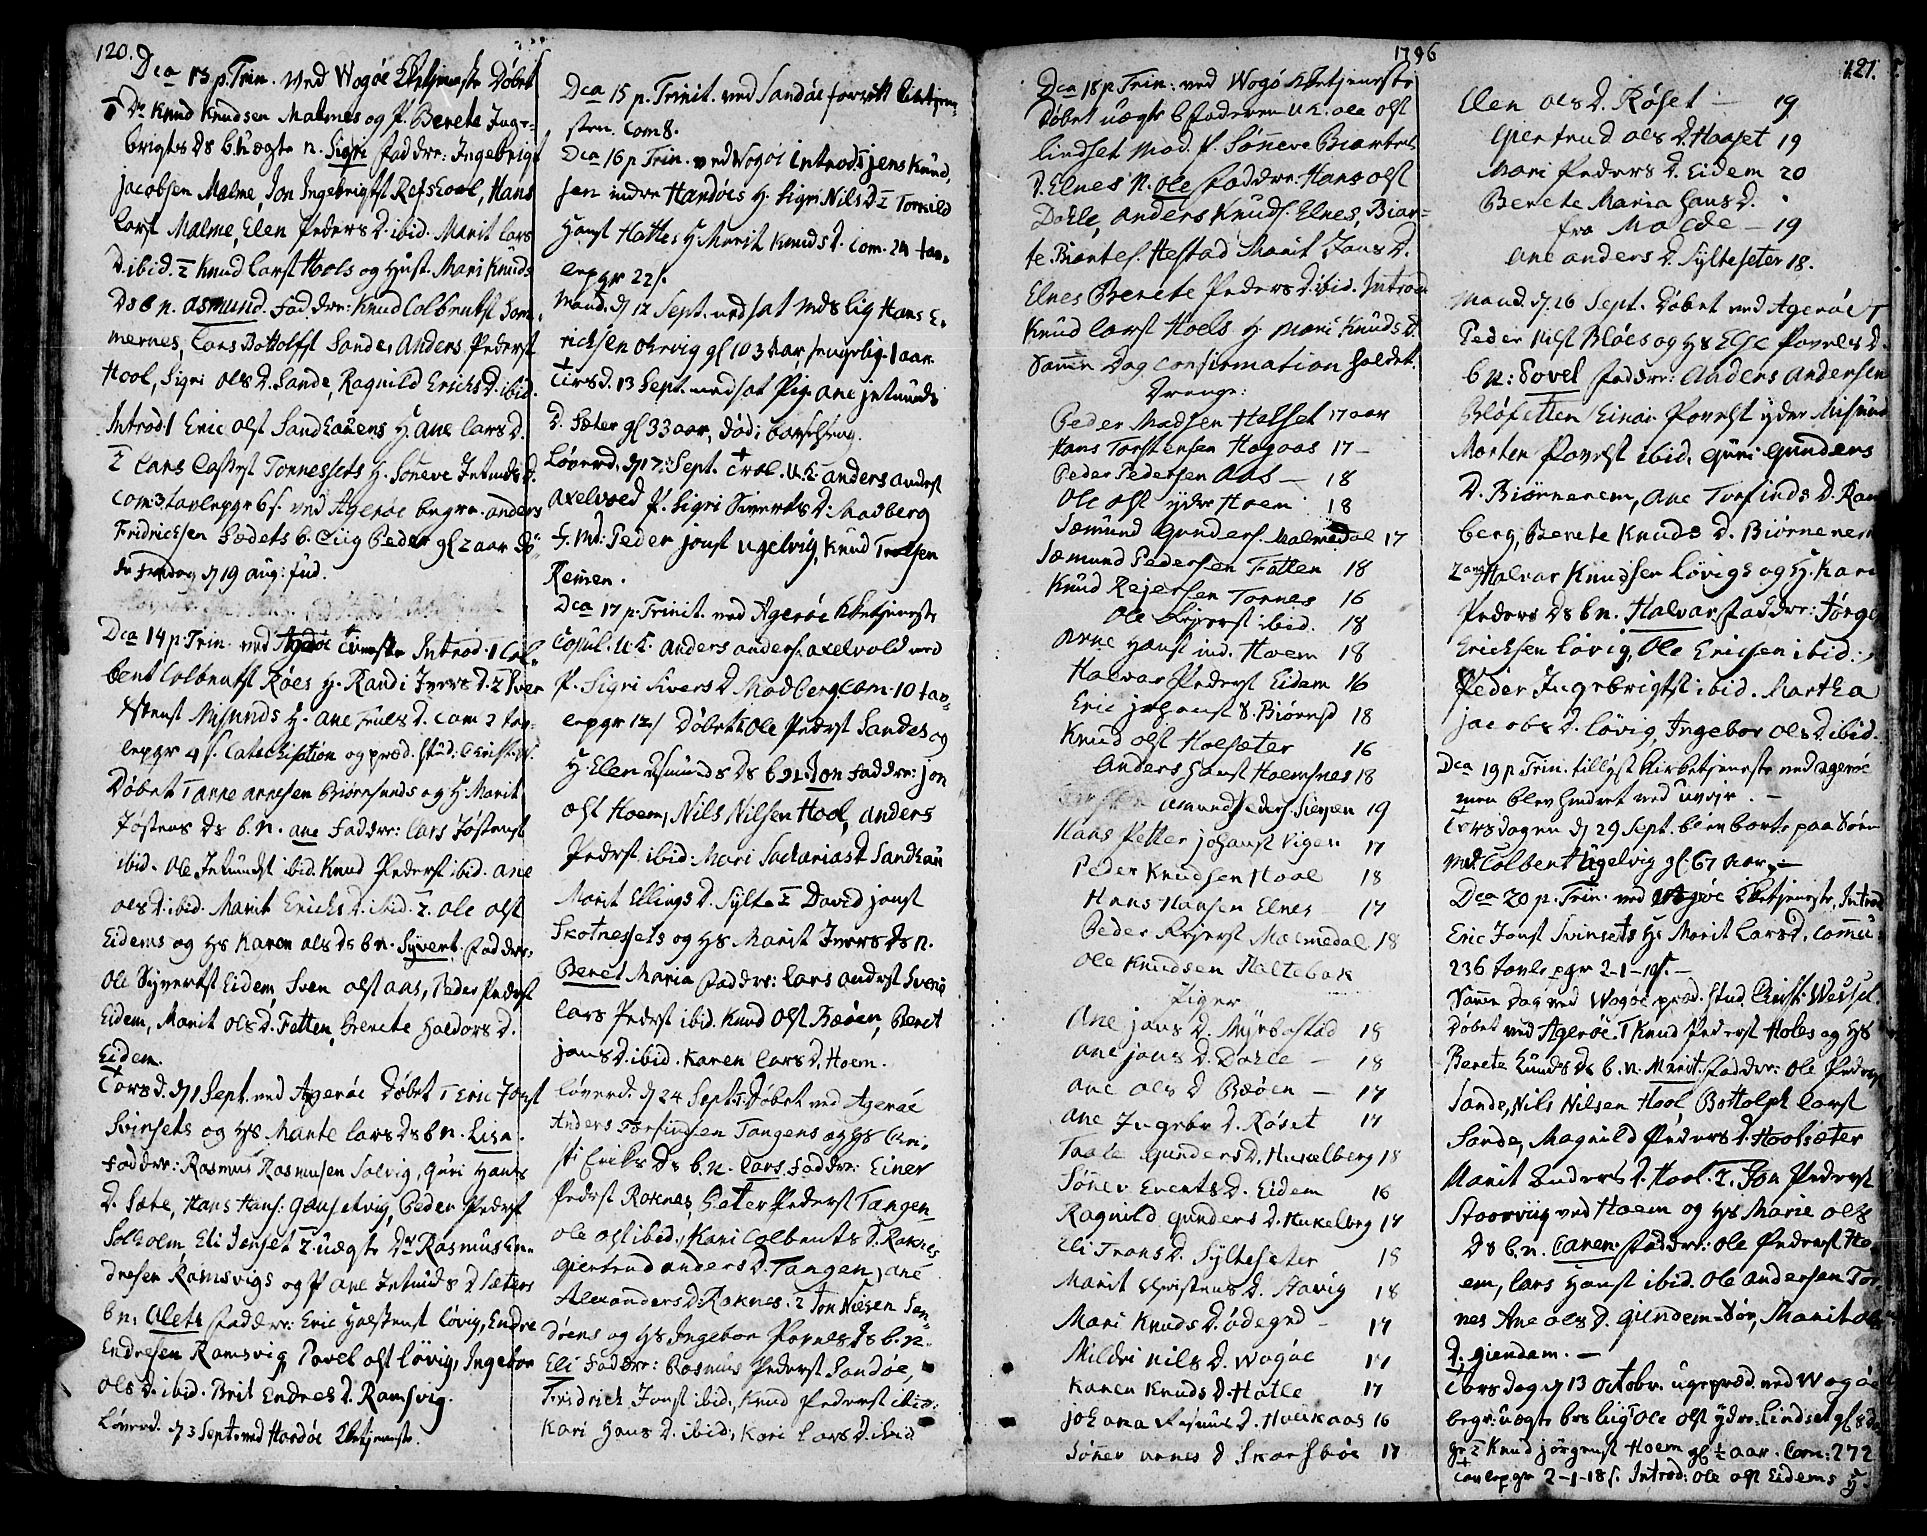 120.
Dca 13 p. Trin. ved Wogøe Kketjeneste Døbet
Knud Knudsen Malmes og P. Berete Inge-
brigts Ds b. uægte n. Sigri Faddere: Ingebrigt
jacobsen Malme, Jon Ingebrigtst Refskoel, Hans
larst Malme, Elen Peders D. ibid. Marit lars
D. ibid. 2 Knud larst Hools og Hust. Mari Knuds
Ds b n. asmund. Faddere: Knud Colbentst Som-
mernes, Lars Bottolfst Sande, Anders Pederst
Hool, Sigri ols D. Sande, Ragnild Erichs D. ibid.
Introd. 1 Eric olst Sandhauens H. Ane lars D.
2 Lars Tonnessets H. Søneve D.
Com: 3 tavlepgr 6 s. ved Agerøe begra. anders
Fridricksen Sædets b. liig Peder gl 2 aar Dø-
de Fredag d 19 aug:
Dca 14 p. Trin. ved Agerøe Tieneste Introd. 1 Col-
bent Colbentst Røes H. Randi Ivers D. 2 Iver
Misunds H. Ane Truls D. Com 2 tav-
lepgr 4 s. Catechisation og præd. stud:
Døbet 1 anne annesen Biørnsunds og H. Marit
Jøstens Ds b. n. ane Faddere: Lars Jøstenst
ibid. Ole ibid. Knud Pederst ibid. ane
ols D. ibid. Marit Erichs D. ibid. 2. ole olst
Eidems og Hs Karen ols Ds b n. Syvert. Faddere:
ole Syvertst Eidem, Sven olst aas, Peder Pederst
Eidem, Marit ols D. Fatten, Berete Haldors D.
Eidem.
Torsd. d 1 Sept. ved Agerøe Døbet 1 Eric Jonst
Svinsets og Hs Marite lars Ds b n. Lisa.
Faddere: Rasmus Rasmusen Solvig, Guri Hans
D. Sæte, Hans Hans: Gaustvig, Peder Pederst
Solholm, Eli 2. uægte Rasmus En-
dresen Ramsvigs og P Ane D Sæters
b n. Alets Faddere: Eric Halstenst Løvig, Endre
Endresen Ramsvig, Povel olst løvig, Ingebor
ols D. ibid. Brit Endres D. Ramsvig.
Løverd. d 3 Sept. ved Hardøe Kketjeneste.
Dca 15 p. Trinit. ved Sandøe forrett kketjene-
sten. Com 8.
Dca 16 p Trin. ved Wogøe introd. jens Knud-
sen indre Hardøes H. Sigri Nils D. 2 Torkild
Hanst Hattes H. Marit Knuds D. Com. 24 tav-
lepgr 22 s.
Mand. d 12 Sept. nedsat Mds lig Hans E-
ricksen ohrvig gl 103 Aar
Tirsd. 13 Sept. nedsat Pig. ane
D. Sæter gl 33 aar, død i barselseng.
Løverd. d 17: Sept. Trol. U.K. anders anderst
axelvoed P. Sigri Siverts D. Madberg
F. Md: Peder jonst ugelvig, Knud Troelsen
Remen.
Dca 17 p. Trinit. ved Agerøe Kketjeneste
Copul. U.K. anders anders. axelvold med
P. Sigri Sivers D. Madberg Com. 10 tav-
lepgr 12 s Døbet 1 Ole Pederst Sandes og
H. Elen Asmunds Ds b. n. Jon Faddere: jon
olst Hoem, Nils Nilsen Hool, anders
Pederst ibid. Mari Sacharias D Sandhau
Marit Ellings D. Sylte 2 David jonst
Skotnessets og Hs Marit Ivers Ds n.
Beret Maria Faddere: Lars anderst Sveriæ
Lars Pederst ibid. Knud olst Bæøen, Beret
jons D. ibid. Karen lars D. Hoem.
Løverd. d 24 Sept. Døbet ved Agerøe
Anders Torfindsen Tangens og Hs Chri-
sti Erichs Ds b. n. Lars. Faddere: Einer
Pederst Roknes, Peter Pederst Tangen
ole olst ibid, Kari Colbents D. Roknes
Giertrud anders D. Tangen, ane
Alexanders D. Roknes. 2 Jon Nielsen San-
døens og Hs Ingebor Povels Ds b. n.
Eli Faddere: Rasmus Pederst Sandøe,
Fridrich Jonst ibid, Knud Pederst ibid:
Kari Hans D. ibid, Kari lars D. ibid
1796
Dca 18 p Trin: ved Wogø Kketjeneste
Døbet uægte b Faderen U.K. ole olst
lindset Mod. P. Sønneve Biartes
D. Elnes n. ole Faddere: Hans olst
Dahle, anders Knuds. Elnes, Biar-
te Biartes. Hestad Marit Jons D.
Elnes Berete Peders D. ibid. Introd.
Knud larst Hoels H. Mari Knuds D.
Samme Dag Confirmation holdet.
Drenge:
Peder Madsen Halset 17 aar
Hans Torstensen Hagaas 17 -
Peder Pedersen Aas - 18
Ole olst ydre Hoem 18
Sæmund Gunders. Malmedal 17
Sæmund Pedersen Fatten 18
Knud Rejersen Tornes 16
Ole Rejerst ibid. 18
Arne Hanst ind. Hoem 18
Halvar Pederst Eidem 16
Eric johanst S. Biørnsd 18
Knud olst Holsæter 16
Anders Hanst Hoemsnes 18
Amund Peders. Sieven 19
Hans Petter johanst Vigen 17
Peder Knudsen Hool 18
Hans Hansen Elnes - 17
Peder Rejerst Malmedal 18
Ole Knudsen Haltebak
Piger
Ane jons D. Myrbostad 18
Ane jons D. Dahle - 18
Ane ols D Bæøen - 17
Ane Ingebr D. Røset 17
Taale Gunders D. Huselberg 18
Sønev Events D. Eidem 16
Ragnild Gunders D. Huselberg 17
Eli Trons D. Sylteseter 18
Marit Christens D. Havig 18
Mari Knuds D. ødegrd - 17
Mildri Nils D. Wogøe 17
Karen Knuds D. Hatle 17
johana Rasmus D. Hvikaas 16
Sønev arnes D Skarsbøe 17
121.
Elen ols D. Røset - 19
Giertrud ols D. Haaset 19
Mari Peders D. Eidem 20
Berete Maria Hans D.
fra Molde - 19
Ane anders D. Sylteseter 18.
Mand. d. 26 Sept. Døbet ved Agerøe 1
Peder Nilst Bloes og Hs Else Povels D.
b n: Povel Faddere: Anders Andersen
Blosetten Einar Povelst ydre Misund
Morten Povelst ibid. Guri Gunders
D. Biørnerem, Ane Torfinds D. Ram
berg, Berete Knuds D. Biørnerem
2 Halvar Knudsen Løvigs og H. Kari
Peders Ds b n. Halvar. Faddere: Jørgen
Ericksen Løvig, Ole Ericsen ibid.
Peder Ingebrigtst ibid. Martha
jacobs D. Løvig, Ingebor ols D. ibid.
Dca 19 p Trin. tillyst Kirketjeneste ved Agerøe
men blev hindret ved uvejr. -
Torsdagen d 29 Sept. paa Søen
Md. Colbent Ugelvig gl. 67 aar -
Dca 20 p. Trin. ved Wogøe Kketjeneste, Introd
Eric Jonst Svinsets Hs Marit Lars D. Comu:
236 tavlepgr 2-1-10 s. -
Samme Dag ved Wogøe præd. stud. Christ: Wessel.
Døbet ved Agerøe. 1 Knud Pederst Holes og Hs
Berete Ds b. n. Marit. Faddere: Ole Pederst
Sande, Nils Nilsen Hool Bottolph larst
Sande, Magnild Peders D. Hoolsæter
Marit Anders D. Hool. 2. Jon Pederst
Stoorviig ved Hoem og Hs Marie ols
Ds b. n. Caren: Faddere: Ole Pederst Ho-
em, Lars Hanst ibid. Ole andersen Tor-
nes Ane ols D. Giendem Marit ols
D. Giendem. -
Torsdag d 13 Octobr. ugepræd. ved Wogøe
begr: uægte bs liig Ole olst ydre lindset
2 Knud jørgenst Hoem gl ½ aar. Com: 272
tavlepgr 2-1-18 s. Introd: Ole olst Eidems